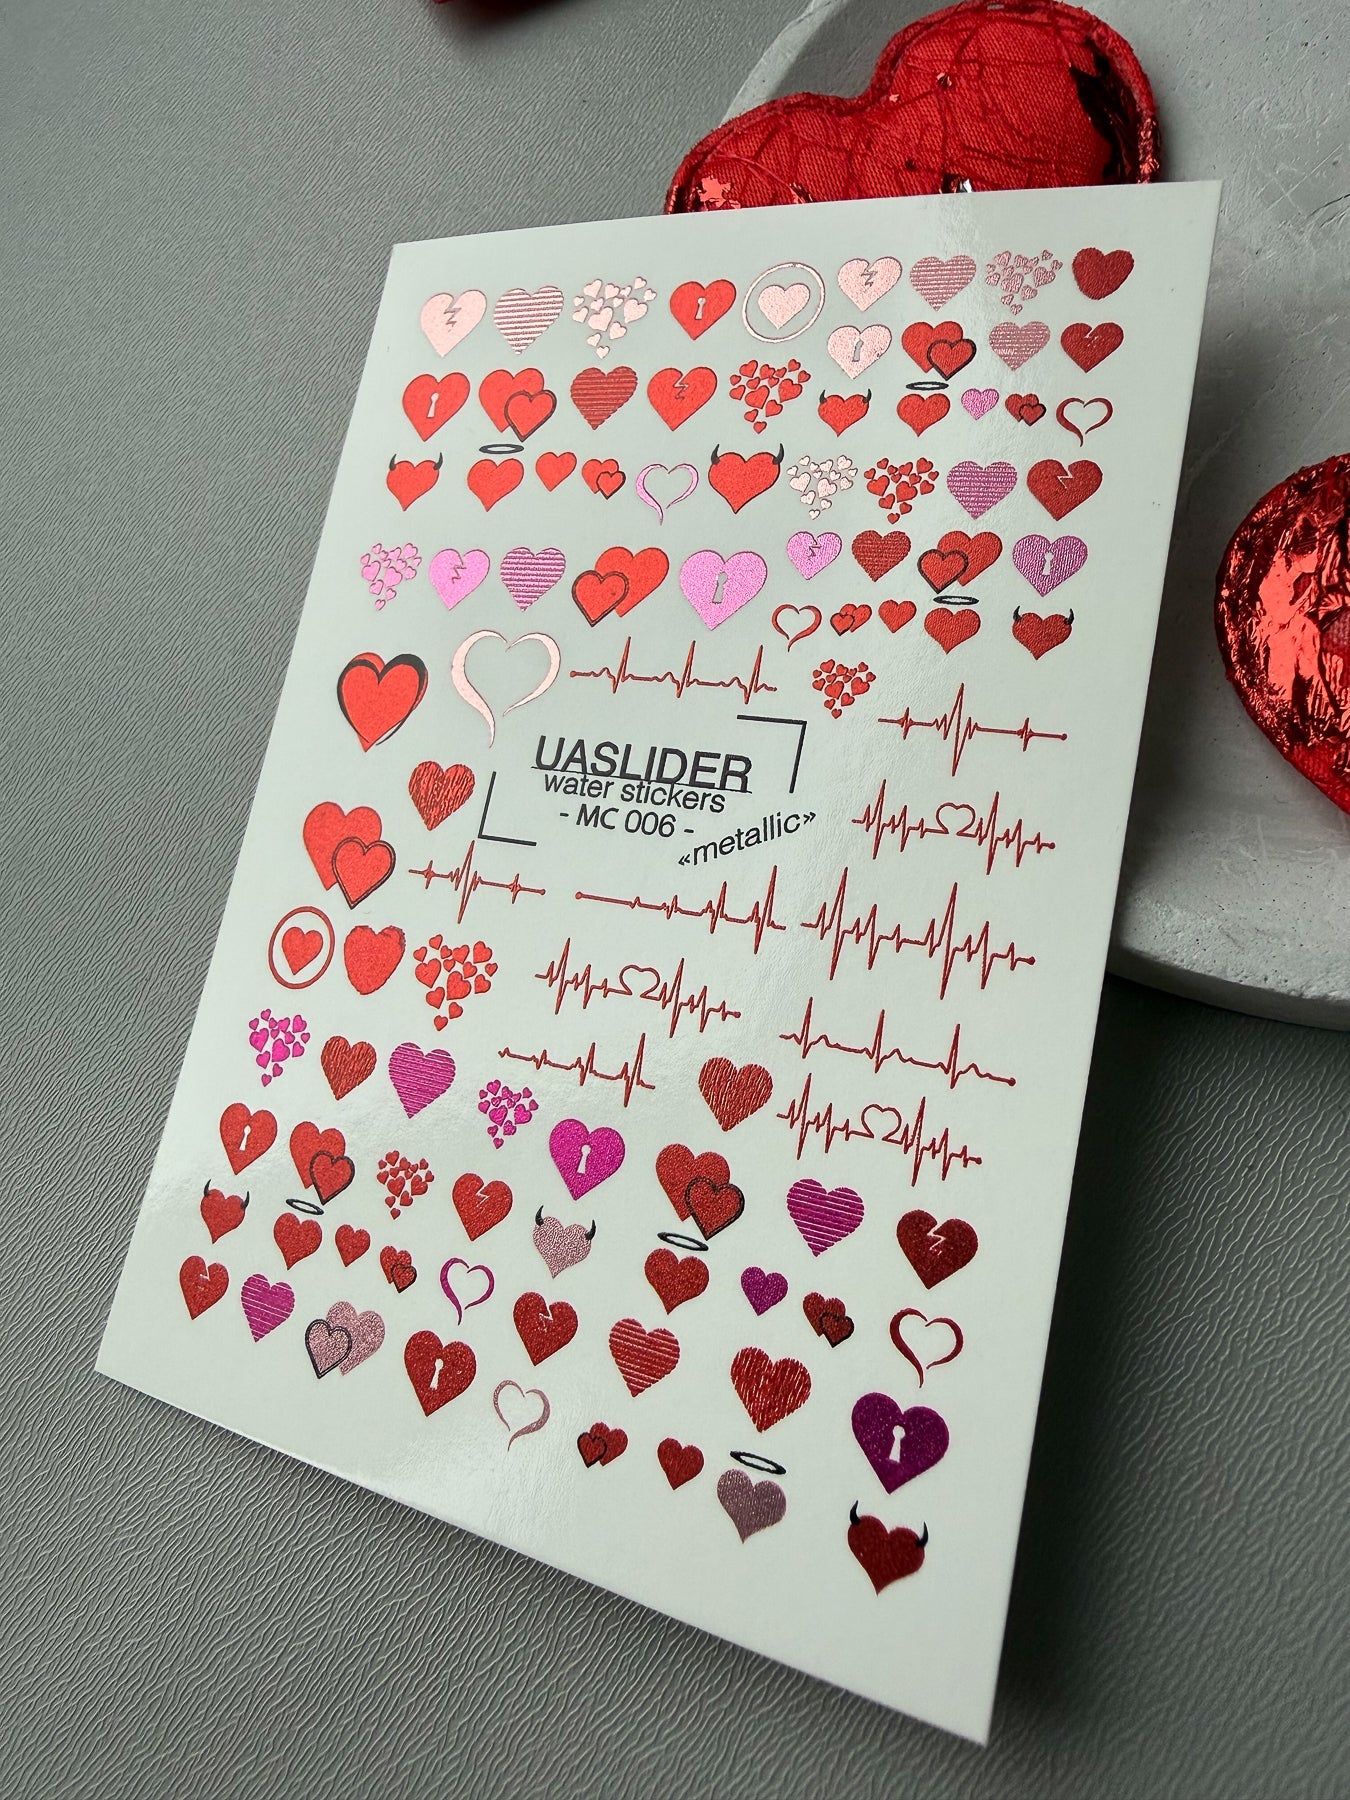 UASLIDER
water stickers
- MC 006 -
«metallic»